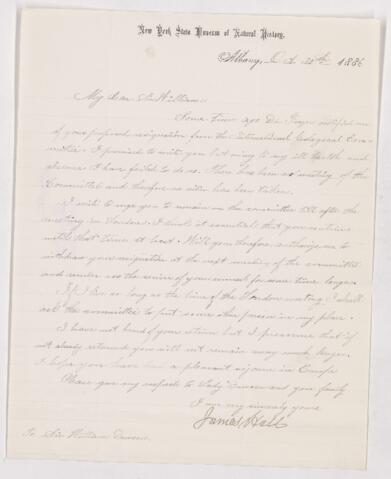 New York State Museum of Natural History.
Albany, Oct. 20th 1886
My dear Sir William:
Some time ago Dr. Frazer notified me
of your proposed resignation from the International Geological Com-
mittee. I promised to write you but owing to my ill health and
absence I have failed to do so. There has been no meeting of the
Committee and therefore no action has been taken.
I wish to urge you to remain on the committee till after the
meeting in London. I think it essential that you continue
until that time at least. Will you therefore authorize me to
withdraw your resignation at the next meeting of the committee
and render us the service of your counsel for some time longer.
If I live so long as the time of the London meeting I shall
ask the committee to put some other person in my place.
I have not heard of your return but I presume that if
not already returned you will not remain away much longer.
I hope you have had a pleasant sojourn in Europe
Please give my respects to Lady Dawson and your family
I am very sincerely yours
James Hall
To Sir William Dawson